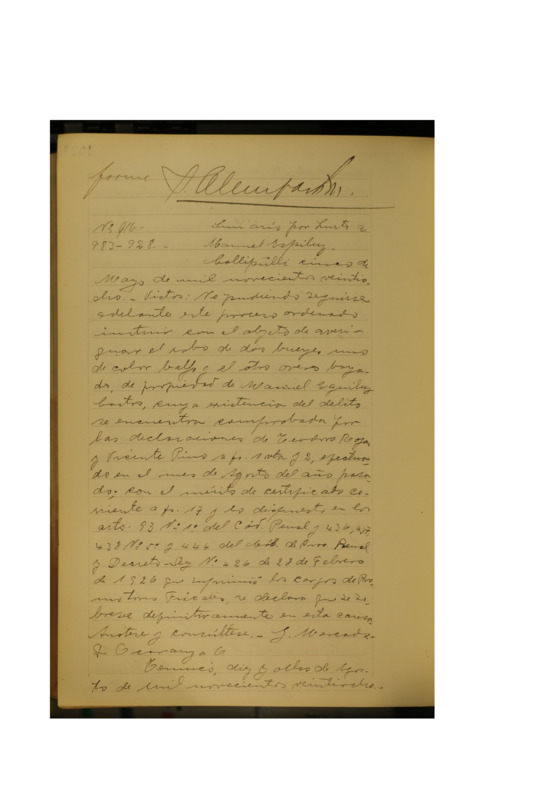 forme
Nº 416.- Sumario por hurto a
983-928.- Manuel Espiluy.
Collipulli cinco de
Mayo de mil novecientos veintio
cho.- Vistos: No pudiendo seguirse
adelante este proceso ordenado
instruir con el objeto de averi-
guar el robo de dos bueyes uno
de color y el otro overo baya-
do, de propiedad de Manuel
Castro, cuya existencia del delito
se encuentra comprobada por
las declaraciones de Teodoro Rojas
y Vicente Pino a fs. 1 vta y 2, efectua-
do en el mes de Agosto del año pasa-
do; con el mérito de certificado co-
rriente a fs. 17 y lo dispuesto en los
arts. 93 Nº 1º del Cód. Penal y 436, 437,
438 Nº 5º y 444 del Cód. de Proc. Penal
y Decreto-Ley Nº 426 de 28 de Febrero
de 1926 que suprimió los cargos de Pro
motores Fiscales, se declara que se so-
bresee definitivamente en esta causa,
Anótese y consúltese.- J. Mercado
Ocaranza C
Temuco, diez y ocho de Agos-
to de mil novecientos veintiocho.